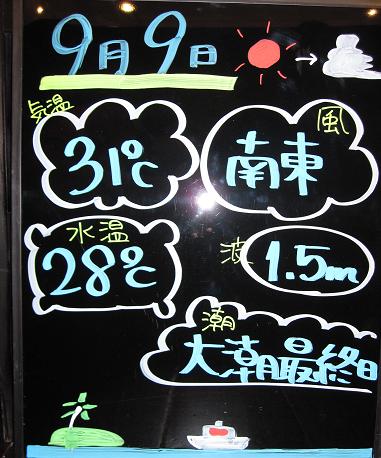 9月9日 →
気温
31℃
風
南東
水温
28℃
波
1.5m
潮
大潮最終日